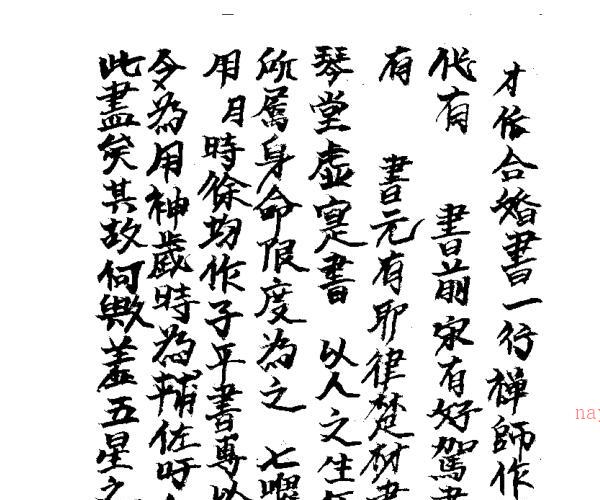 才依合婚書一行禅師作
代有　書前宋有好駕書
有　書元有耶律楚材書
琴堂虚寔書　以人之生年
所属身命限度為之　七曜
用月時徐均作子平書專以
令為用神歳時為輔佐吁
此盡矣其故何歟盖五星之
nay